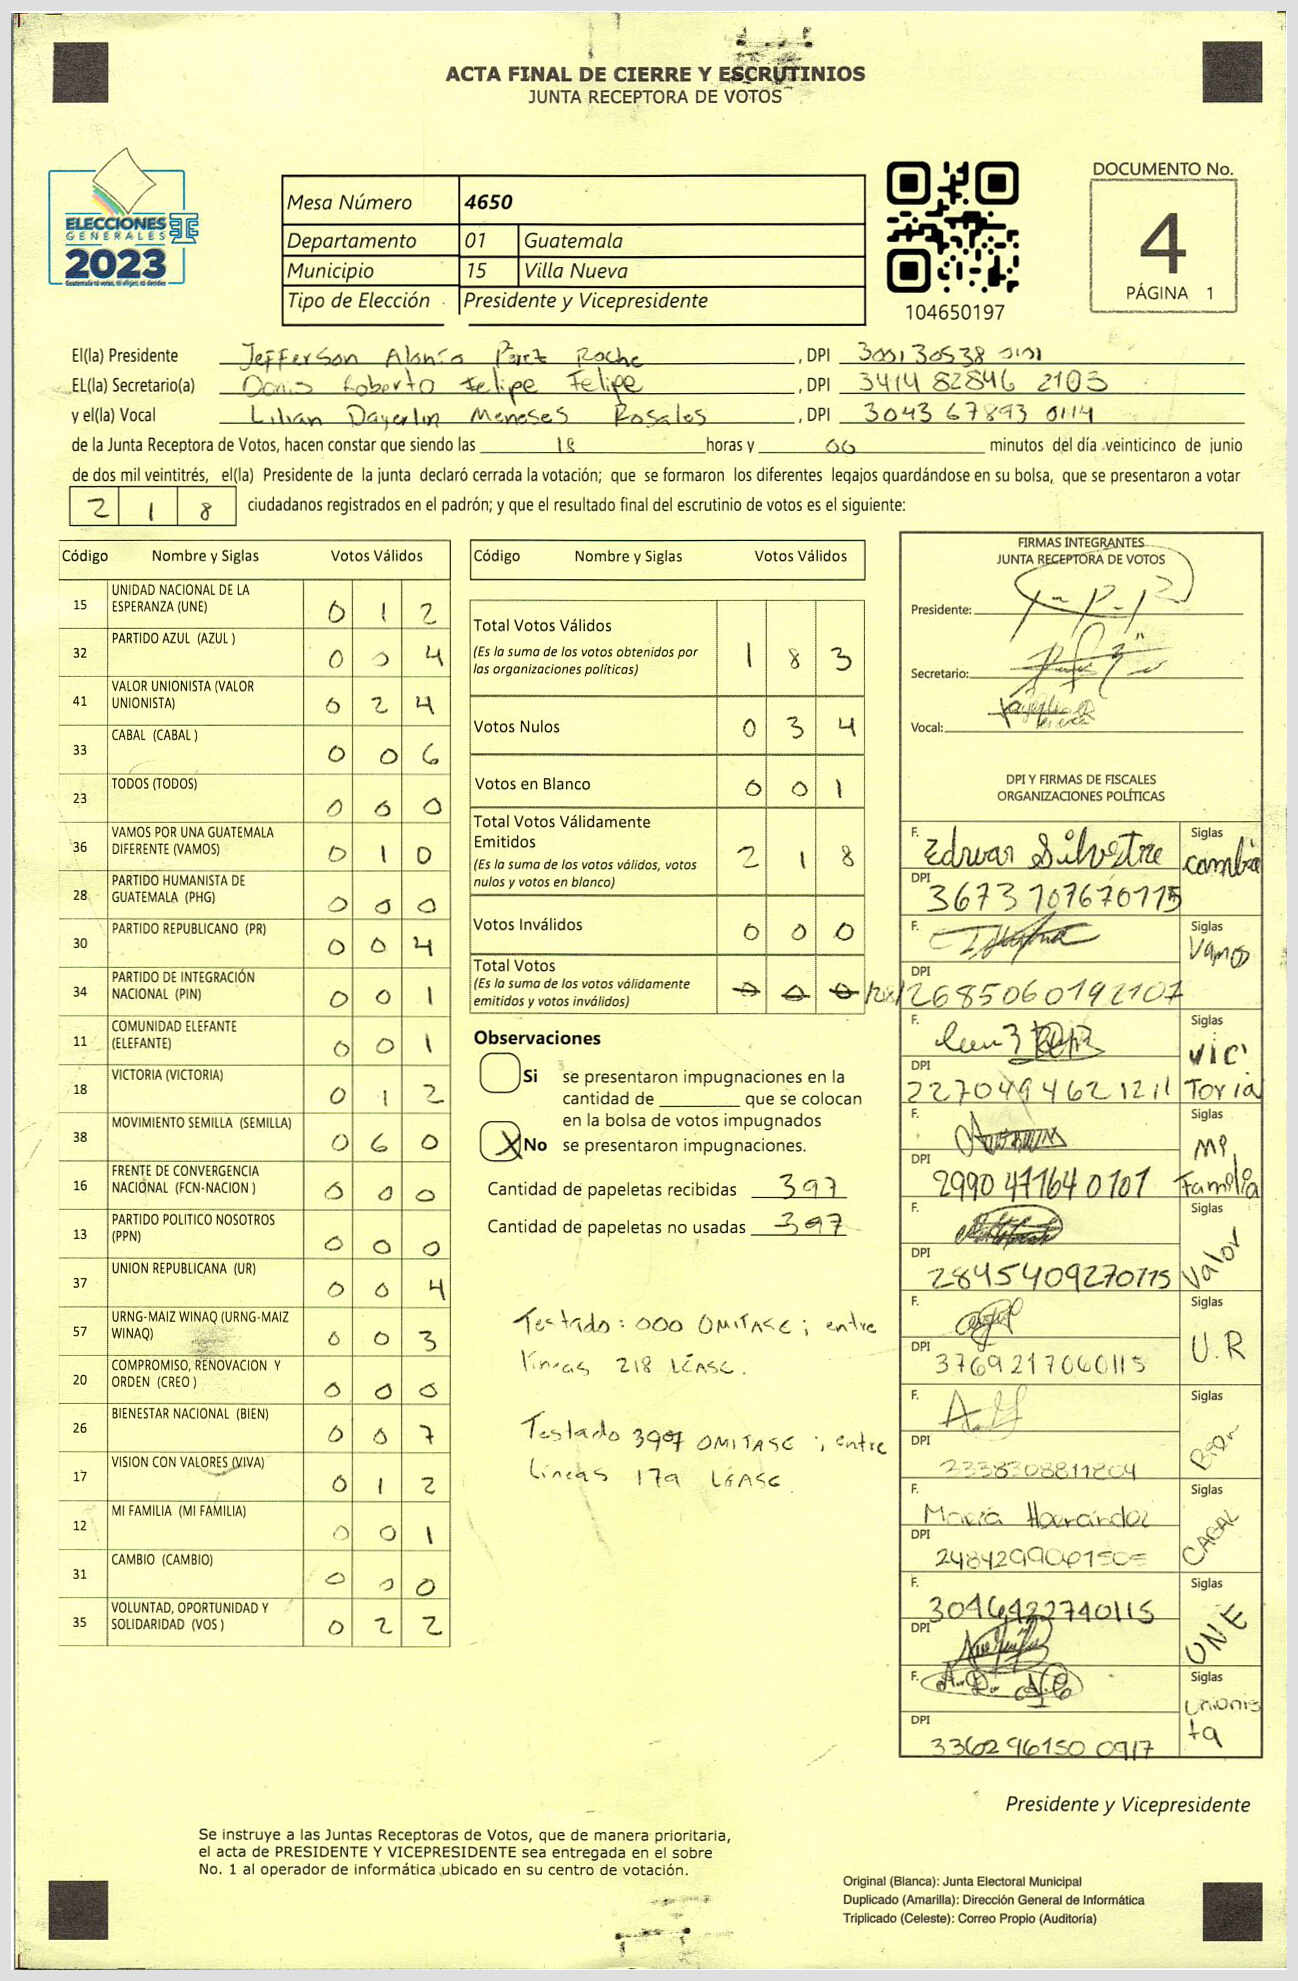 ACTA FINAL DE CIERRE Y ESCRUTINIOS
JUNTA RECEPTORA DE VOTOS
ELECCIONES
GENERALES
2023
Mesa Número 4650
Departamento 01 Guatemala
Municipio 15 Villa Nueva
Tipo de Elección Presidente y Vicepresidente
104650197
DOCUMENTO No.
4
PÁGINA 1
El(la) Presidente Jefferson Roche , DPI
EL(la) Secretario(a) Roberto Felipe Felipe , DPI 3414 82846 2103
y el(la) Vocal Lilian Dayerlin Meneses Rosales , DPI 3043 67893 0114
de la Junta Receptora de Votos, hacen constar que siendo las 18 horas y 00 minutos del día veinticinco de junio
de dos mil veintitrés, el(la) Presidente de la junta declaró cerrada la votación; que se formaron los diferentes legajos guardándose en su bolsa, que se presentaron a votar
2 1 8 ciudadanos registrados en el padrón; y que el resultado final del escrutinio de votos es el siguiente:
Código Nombre y Siglas Votos Válidos
15 UNIDAD NACIONAL DE LA ESPERANZA (UNE) 0 1 2
32 PARTIDO AZUL (AZUL ) 0 0 4
41 VALOR UNIONISTA (VALOR UNIONISTA) 0 2 4
33 CABAL (CABAL ) 0 0 6
23 TODOS (TODOS) 0 0 0
36 VAMOS POR UNA GUATEMALA DIFERENTE (VAMOS) 0 1 0
28 PARTIDO HUMANISTA DE GUATEMALA (PHG) 0 0 0
30 PARTIDO REPUBLICANO (PR) 0 0 4
34 PARTIDO DE INTEGRACIÓN NACIONAL (PIN) 0 0 1
11 COMUNIDAD ELEFANTE (ELEFANTE) 0 0 1
18 VICTORIA (VICTORIA) 0 1 2
38 MOVIMIENTO SEMILLA (SEMILLA) 0 6 0
16 FRENTE DE CONVERGENCIA NACIONAL (FCN-NACION ) 0 0 0
13 PARTIDO POLITICO NOSOTROS (PPN) 0 0 0
37 UNION REPUBLICANA (UR) 0 0 4
57 URNG-MAIZ WINAQ (URNG-MAIZ WINAQ) 0 0 3
20 COMPROMISO, RENOVACION Y ORDEN (CREO ) 0 0 0
26 BIENESTAR NACIONAL (BIEN) 0 0 7
17 VISION CON VALORES (VIVA) 0 1 2
12 MI FAMILIA (MI FAMILIA) 0 0 1
31 CAMBIO (CAMBIO) 0 0 0
35 VOLUNTAD, OPORTUNIDAD Y SOLIDARIDAD (VOS ) 0 2 2
Código Nombre y Siglas Votos Válidos
Total Votos Válidos 1 8 3
(Es la suma de los votos obtenidos por
las organizaciones políticas)
Votos Nulos 0 3 4
Votos en Blanco 0 0 1
Total Votos Válidamente
Emitidos 2 1 8
(Es la suma de los votos válidos, votos
nulos y votos en blanco)
Votos Inválidos 0 0 0
Total Votos 0 0 0
(Es la suma de los votos válidamente
emitidos y votos inválidos)
Observaciones
Si se presentaron impugnaciones en la
cantidad de ________ que se colocan
en la bolsa de votos impugnados
X No se presentaron impugnaciones.
Cantidad de papeletas recibidas 397
Cantidad de papeletas no usadas 397
Testado: 000 OMITASE; entre
líneas 218 LÉASE.
Testado 397 OMITASE; entre
líneas 179 LÉASE.
FIRMAS INTEGRANTES
JUNTA RECEPTORA DE VOTOS
Presidente:
Secretario:
Vocal:
DPI Y FIRMAS DE FISCALES
ORGANIZACIONES POLÍTICAS
F. Edwar Silvestre Siglas Cambio
DPI 3673 107670115
F. Siglas Vamos
DPI 2685060192107
F. Siglas VICTORIA
DPI 2270494621211
F. Siglas MI Familia
DPI 2990 47164 0101
F. Siglas Valor
DPI 2845409270115
F. Siglas U.R
DPI 3769217060115
F. Siglas Bien
DPI 2338308811804
F. María Hernández Siglas CABAL
DPI
F. 3046422740115 Siglas UNE
DPI
F. Siglas Unionista
DPI 3362961500917
Presidente y Vicepresidente
Se instruye a las Juntas Receptoras de Votos, que de manera prioritaria,
el acta de PRESIDENTE Y VICEPRESIDENTE sea entregada en el sobre
No. 1 al operador de informática ubicado en su centro de votación.
Original (Blanca): Junta Electoral Municipal
Duplicado (Amarilla): Dirección General de Informática
Triplicado (Celeste): Correo Propio (Auditoría)